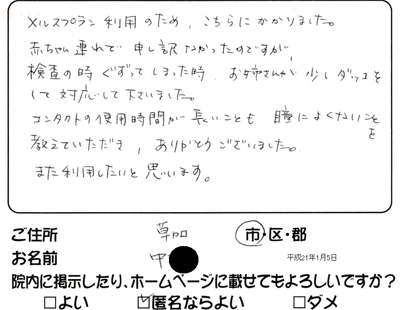 メルスプラン利用のため、こちらにかかりました。
赤ちゃん連れで申し訳なかったのですが、
検査の時ぐずってしまった時、お姉さんが少しダッコを
して対応して下さいました。
コンタクトの使用時間が長いことも瞳によくないことを
教えていただき、ありがとうございました。
また利用したいと思います。
ご住所 草加 市・区・郡
お名前 中
平成21年1月5日
院内に掲示したり、ホームページに載せてもよろしいですか?
□よい ☑匿名ならよい □ダメ